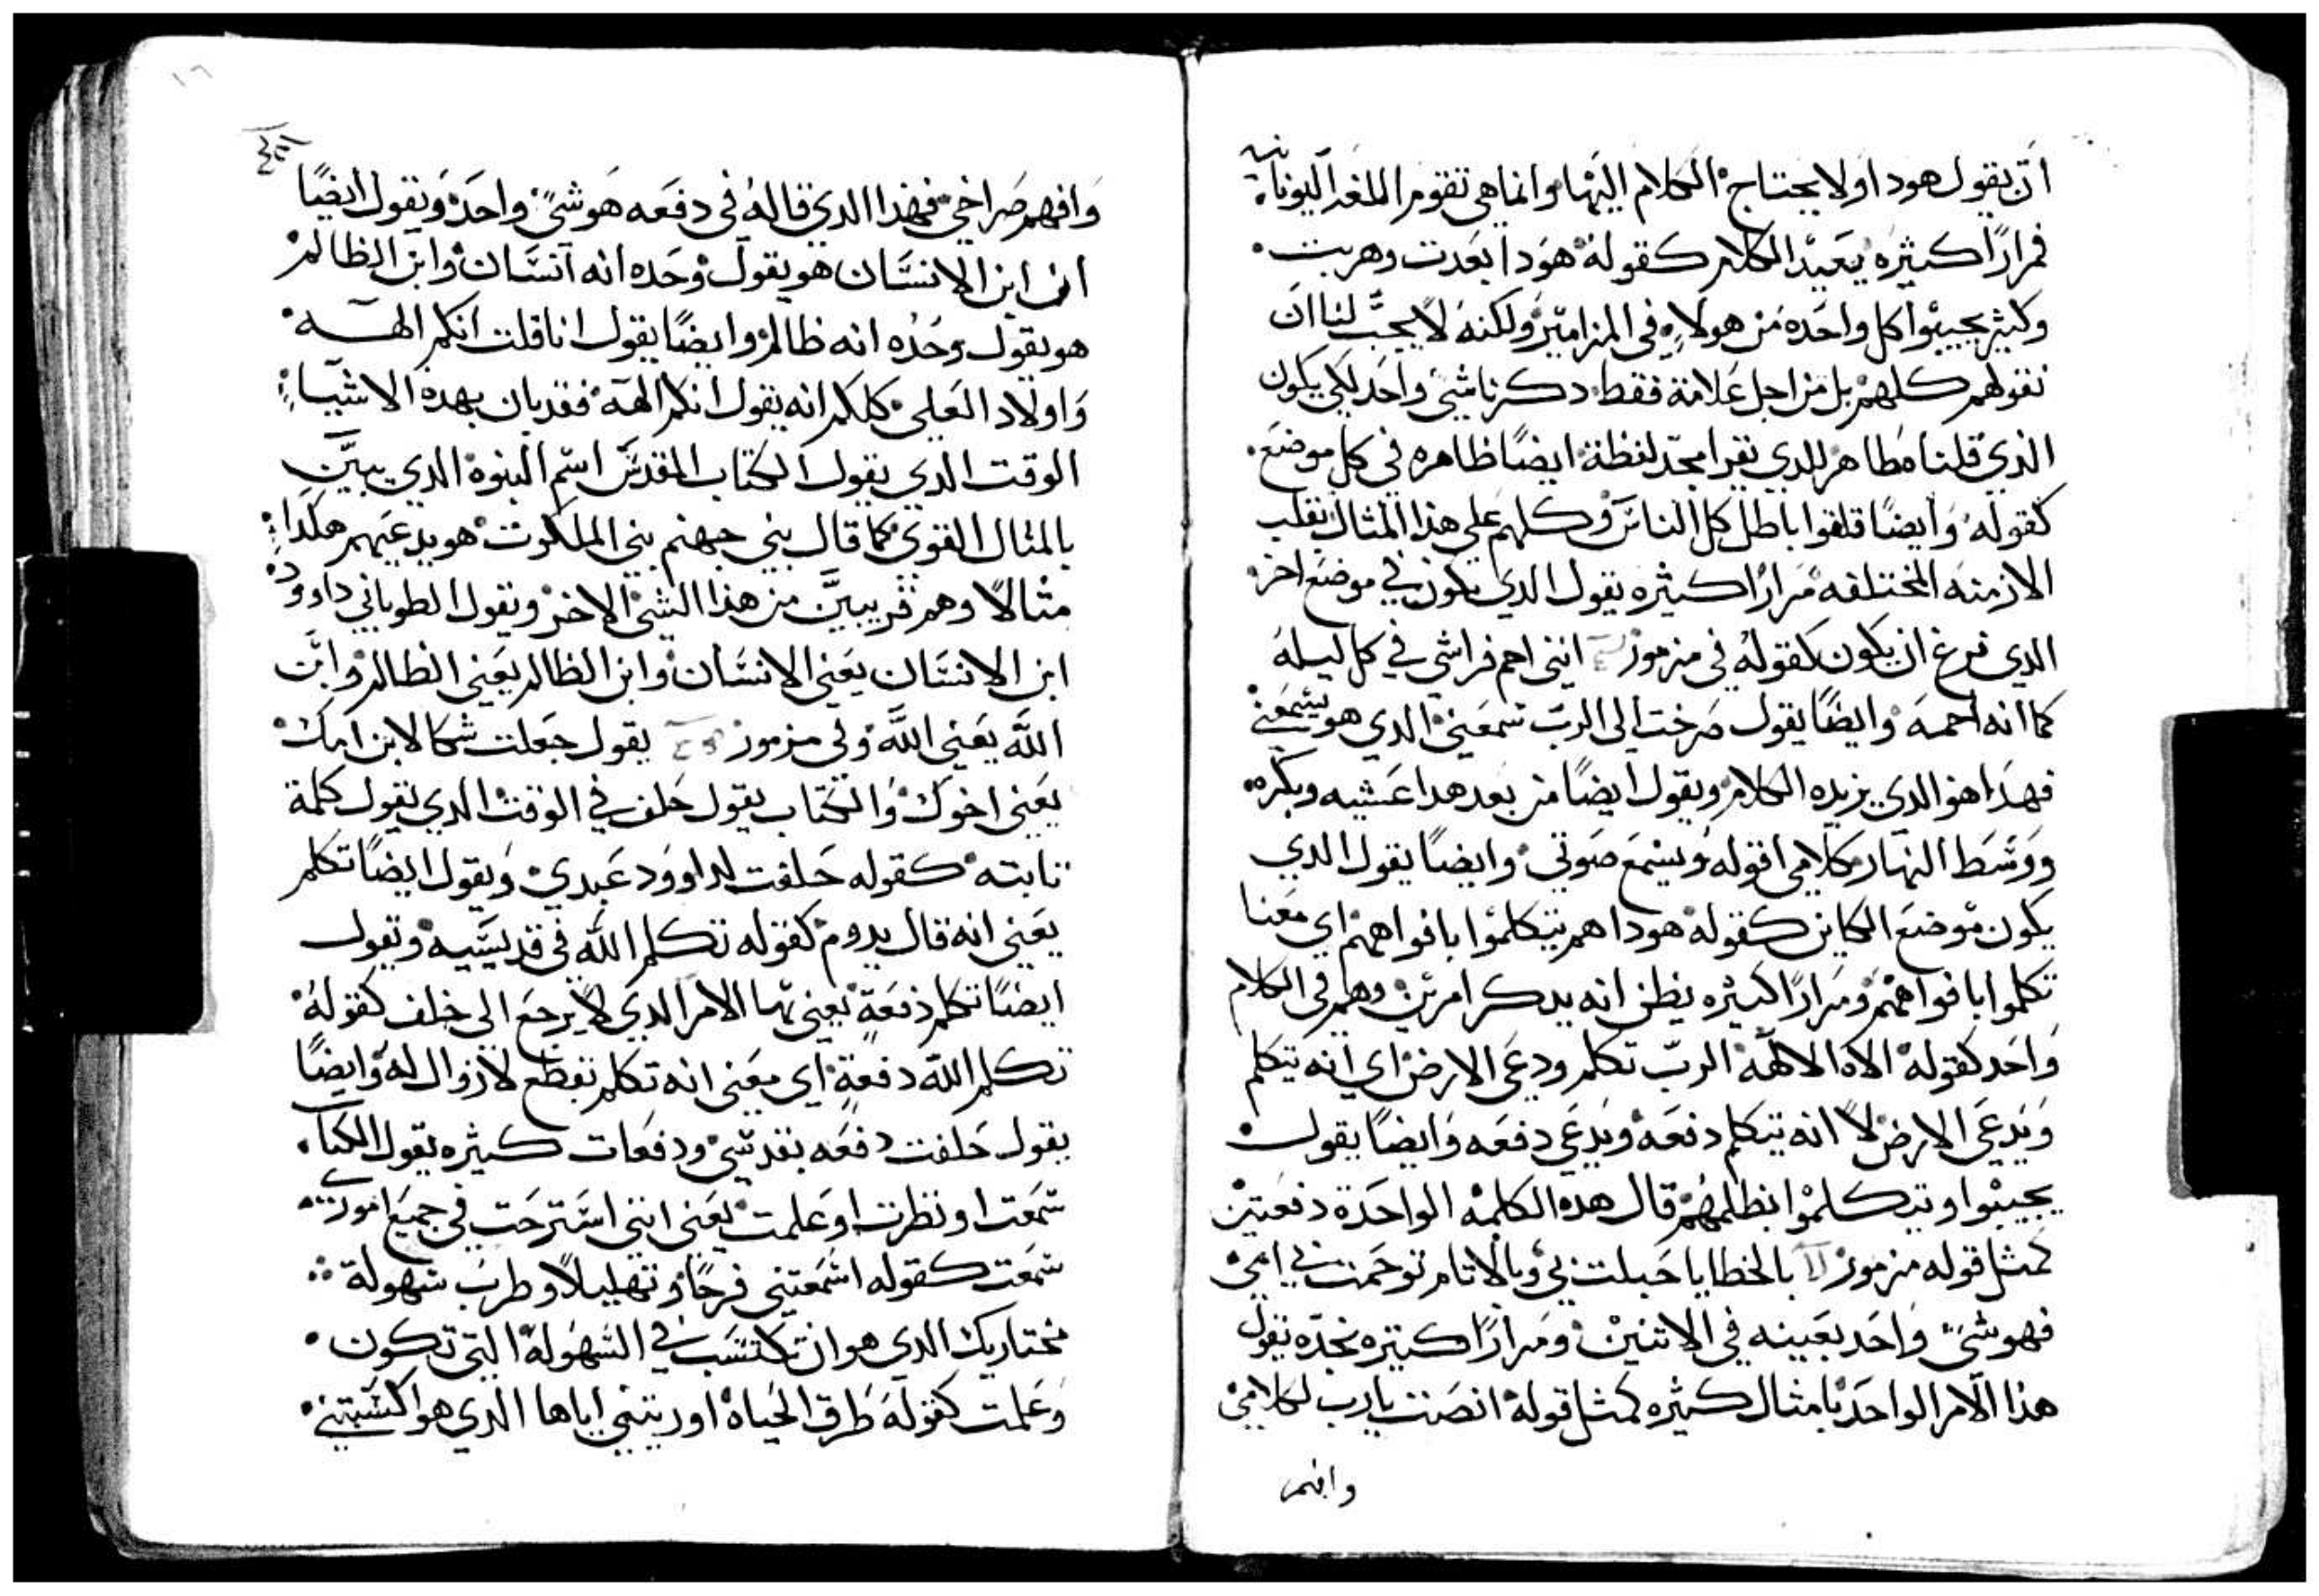 ان يقول هودا ولا يحتاج الكلام اليها وانما هي تقوم اللغه اليونانيه
فمرارًا كثيره يعيد الكلام كقوله هودا بعدت وهربت
وكثير يجيبوا كل واحده من هولاء في المزامير ولكنه لا يجب لنا ان
نقولهم كلهم بل من اجل علامة فقط دكرنا شي واحد لكي يكون
الذي قلنا ظاهر للدي يقرا مجد لفظة ايضًا ظاهره في كل موضع
كقوله وايضًا قلقوا باطل كل الناس وكلهم على هذا المثال تقلب
الازمنه المختلفه مرارًا كثيره يقول الدي يكون في موضع اخر
الدي فرغ ان يكون كقوله في مزمور انني احم فراشي في كل ليله
كما انه احمه وايضًا يقول صرخت الى الرب سمعني الدي هو يسمعني
فهدا هو الدي يزيده الكلام ويقول ايضًا من بعد هدا عشيه وبكره
ووسط النهار كلامي اقوله ويسمع صوتي وايضًا يقول الدي
يكون موضع الكاين كقوله هودا هم يتكلموا بافواههم اي معنا
تكلموا بافواههم ومرارًا كثيره يظن انه يدكر امرين وهم في الكلام
واحد كقوله الاه الالهه الرب تكلم ودعى الارض اي انه يتكلم
ويدعي الارض لا انه يتكلم دفعه ويدعي دفعه وايضًا يقول
يجيبوا ويتكلموا بظلمهم قال هده الكلمه الواحدة دفعتين
كمثل قوله مزمور بالخطايا حبلت بي وبالاثام توحمت بي امي
فهو شيً واحد بعينه في الاثنين ومرارًا كثيره نجده يقول
هذا الامر الواحد بامثال كثيره كمثل قوله انصت يارب لكلامي
وافهم
وافهم صراخي فهذا الدي قاله في دفعه هو شيً واحد ويقول ايضًا
ان ابن الانسان هو يقول وحده انه انسان وابن الظالم
هو يقول وحده انه ظالم وايضًا يقول انا قلت انكم الهه
واولاد العلي كلكم انه يقول انكم الهة فقد بان بهده الاشياء
الوقت الدي يقول الكتاب المقدس اسم البنوه الدي يبين
بالمثال القوي كما قال بني جهنم بني الملكوت هو يدعيهم هكدا
مثالًا وهم قريبين من هذا الشي الاخر ويقول الطوباني داوود
ابن الانسان يعني الانسان وابن الظالم يعني الظالم وابن
الله يعني الله وفي مزمور يقول جعلت شكا لابن امك
يعني اخوك والكتاب يقول حلف في الوقت الدي يقول كلمة
ثابته كقوله حلفت لداوود عبدي ويقول ايضًا تكلم
يعني انه قال يدوم كقوله تكلم الله في قديسيه وتقول
ايضًا تكلم دفعةٍ يعني بها الامر الدي لا يرجع الى خلف كقوله
تكلم الله دفعةٍ اي معنى انه تكلم بقطع لا زوال له وايضًا
يقول حلفت دفعه بقدسي ودفعات كثيره يقول الكتاب
سمعت او نظرت او علمت يعني انني استرحت في جميع اموري
سمعت كقوله اسمعتني فرحًا وتهليلًا وطرب سهولة
مختاريك الدي هو ان تكتسب في السهولة التي تكون
وعلمت كقوله طرق الحياه اوريتني اياها الدي هو اكسبتني